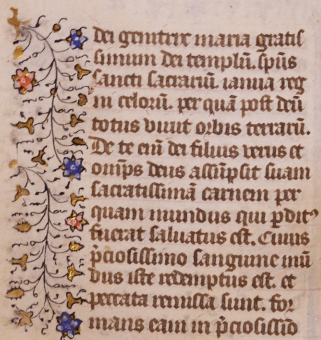 dei genitrix maria gratis
simum dei templū. sp̄us
sancti sacrariū. ianua reg
ni celorū. per quā post deū
totus viuit orbis terrarū.
De te em̄ dei filius verus et
omīps deus assūpsit suam
sacratissimā carnem per
quam mundus qui pdit᾿
fuerat saluatus est. Cuius
p̄ciosissimo sanguine mū
dus iste redemptus est. et
peccata remissa sunt. for
mans eam in p̄ciosissīō